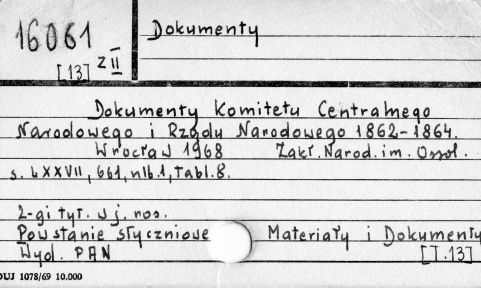 16061 I
[13] Z II
Dokumenty
Dokumenty Komitetu Centralnego
Narodowego i Rządu Narodowego 1862-1864.
Wrocław 1968 Zakł. Narod. im. Ossol.
s. LXXVII, 661, nlb. 1, tabl. 8.
2-gi tyt. w j. ros.
Powstanie styczniowe Materiały i Dokumenty
Wyd. PAN [T. 13]
DUJ 1078/69 10.000